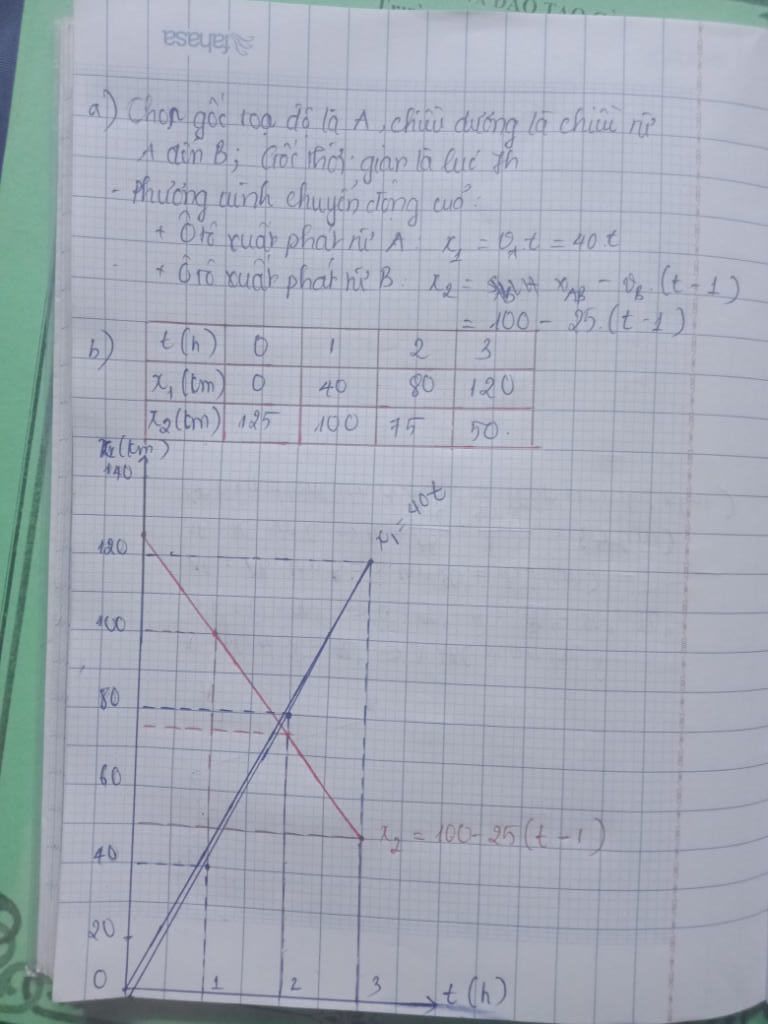 fahasa
a) Chọn gốc toạ độ là A, chiều dương là chiều từ
A đến B; Gốc thời gian là lúc 7h
- Phương trình chuyển động của:
+ Ô tô xuất phát từ A: x₁ = v_A.t = 40t
+ Ô tô xuất phát từ B: x₂ = x_AB - v_B.(t-1)
= 100 - 25.(t-1)
b) t(h) 0 1 2 3
x₁(km) 0 40 80 120
x₂(km) 125 100 75 50.
x(km)
140
x₁ = 40t
120
100
80
60
x₂ = 100-25(t-1)
40
20
0 1 2 3 t(h)